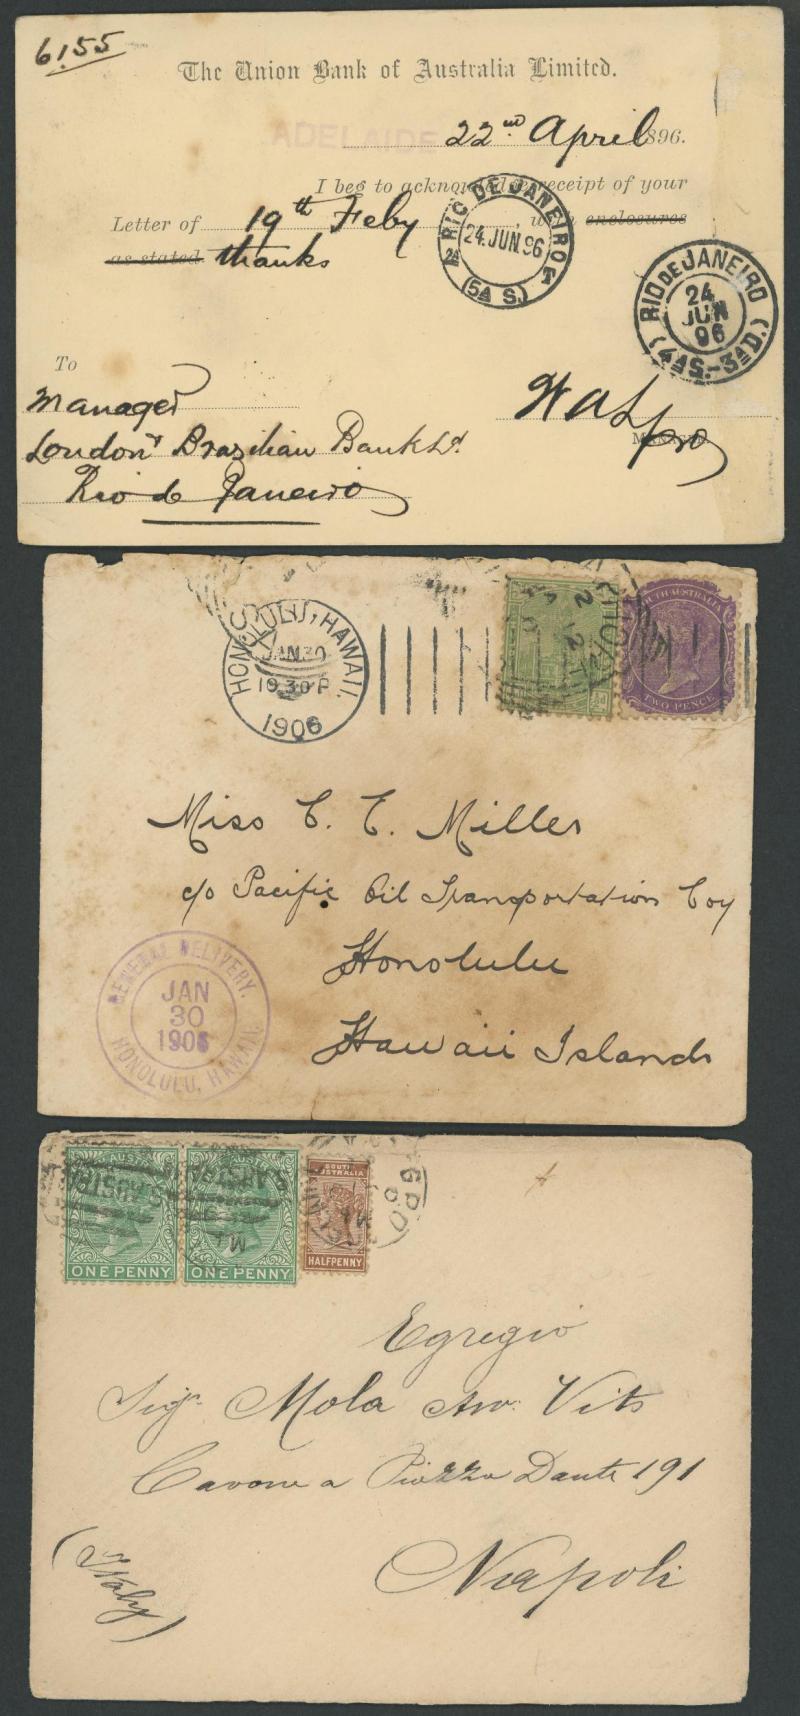 6155
The Union Bank of Australia Limited.
ADELAIDE 22nd April 1896.
I beg to acknowledge receipt of your
Letter of 19th Feby, with enclosures
as stated thanks
RIO DE JANEIRO
24 JUN 96
(5A S.)
RIO DE JANEIRO
24
JUN
96
(4AS.-3AD.)
To
Manager
London & Brazilian Bank Ld.
Rio de Janeiro
HONOLULU, HAWAII.
JAN 30
10 30 P
1906
SOUTH AUSTRALIA
TWO PENCE
Miss C. E. Miller
c/o Pacific Oil Transportation Coy
Honolulu
Hawaii Islands
GENERAL DELIVERY.
JAN
30
1906
HONOLULU, HAWAII.
S. AUSTRALIA
ONE PENNY
S. AUSTRALIA
ONE PENNY
SOUTH
AUSTRALIA
HALFPENNY
G.P.O
Egregio
Sigr. Mola Avv. Vito
Cavone a Piazza Dante 191
Napoli
(Italy)